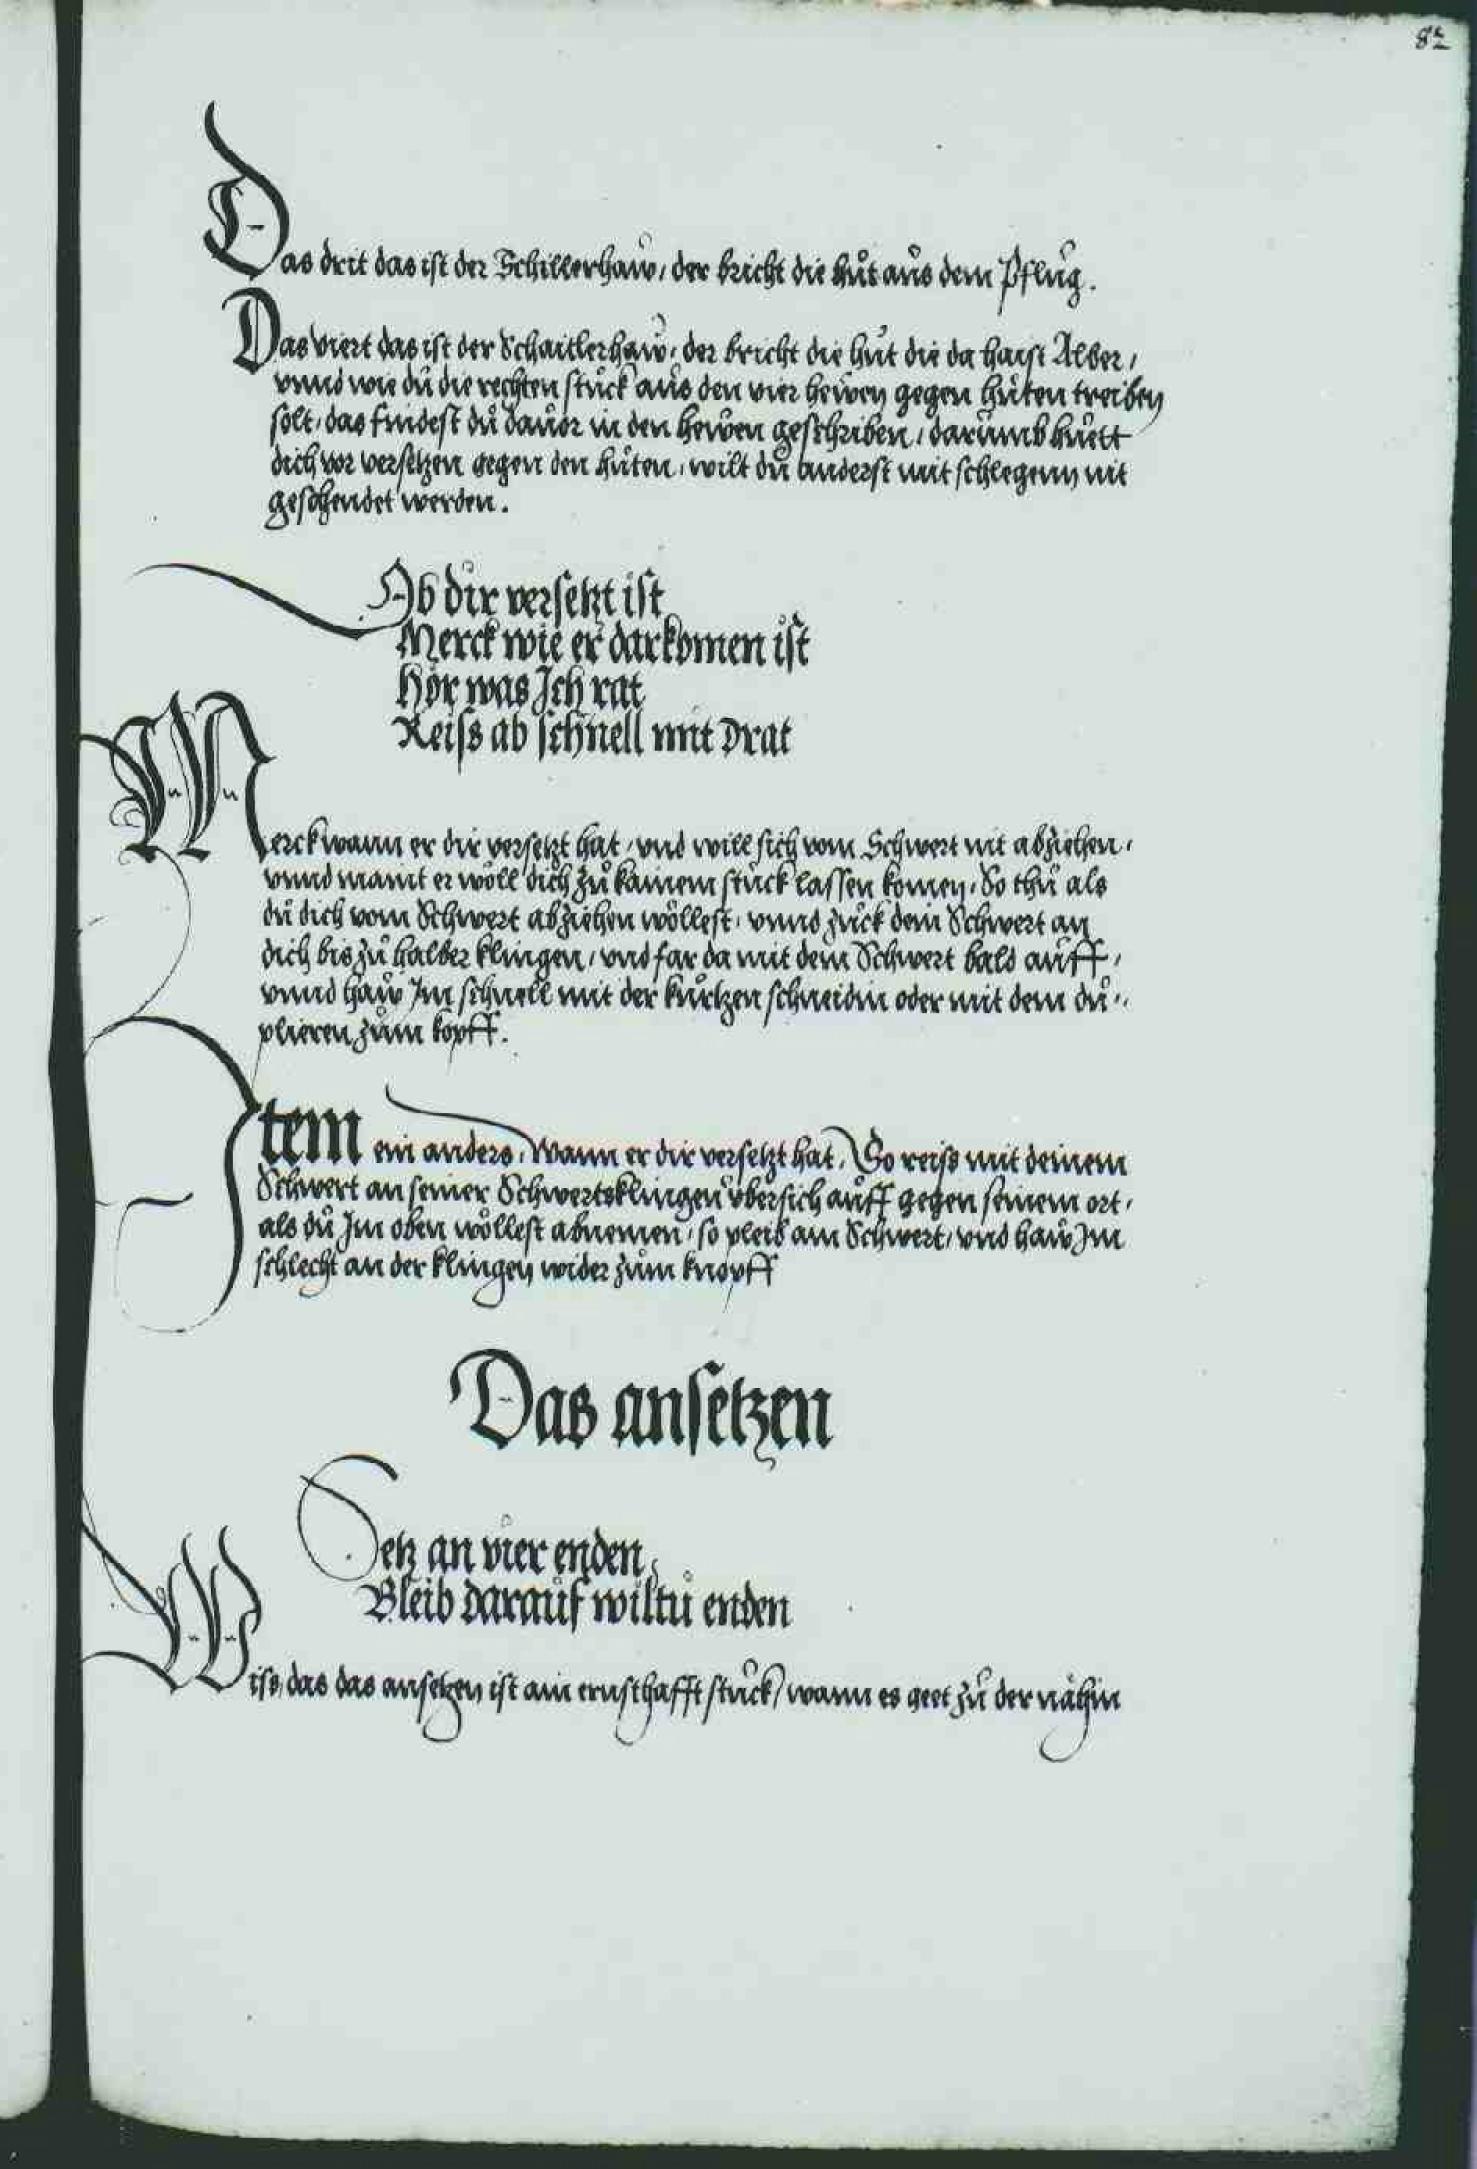 82
Das drit das ist der Schillerhaw, der bricht die hůt aůs dem Pflůg.
Das viert das ist der Schaitlerhaw, der bricht die hůt die da haist Alber,
vnnd wie dů die rechten stůck aůs den vier hewen gegen hůten treiben
solt, das findest dů dauor in den hewen geschriben, darůmb hůett
dich vor versetzen gegen den hůten, wilt dů anderst mit schlegenn nit
geschendet werden.
Ob dir versetzt ist
Merck wie er darkomen ist
Hör was Ich rat
Reiss ab schnell mit Drat
Merck wann er dir versetzt hat, vnd will sich vom Schwert nit abziehen,
vnnd maint er wöll dich zů kainem stůck lassen komen, So thů als
dů dich vom Schwert abziehen wöllest, vnnd zůck dein Schwert an
dich bis zů halber klingen, vnd far da mit dem Schwert bald aůff,
vnnd haw Im schnell mit der kůrtzen schneidin oder mit dem dů-
plieren zům kopff.
Item ein anders, Wann er dir versetzt hat, So reiss mit deinem
Schwert an seiner Schwertsklingen vbersich aůff gegen seinem ort,
als dů Im oben wöllest abnemen, so pleib am Schwert, vnd haw Im
schlecht an der klingen wider zům knopff
Das ansetzen
Setz an vier enden,
Bleib daraůf wiltů enden
Wiss, das das ansetzen ist ain ernsthafft stůck, wann es geet zů der nähin